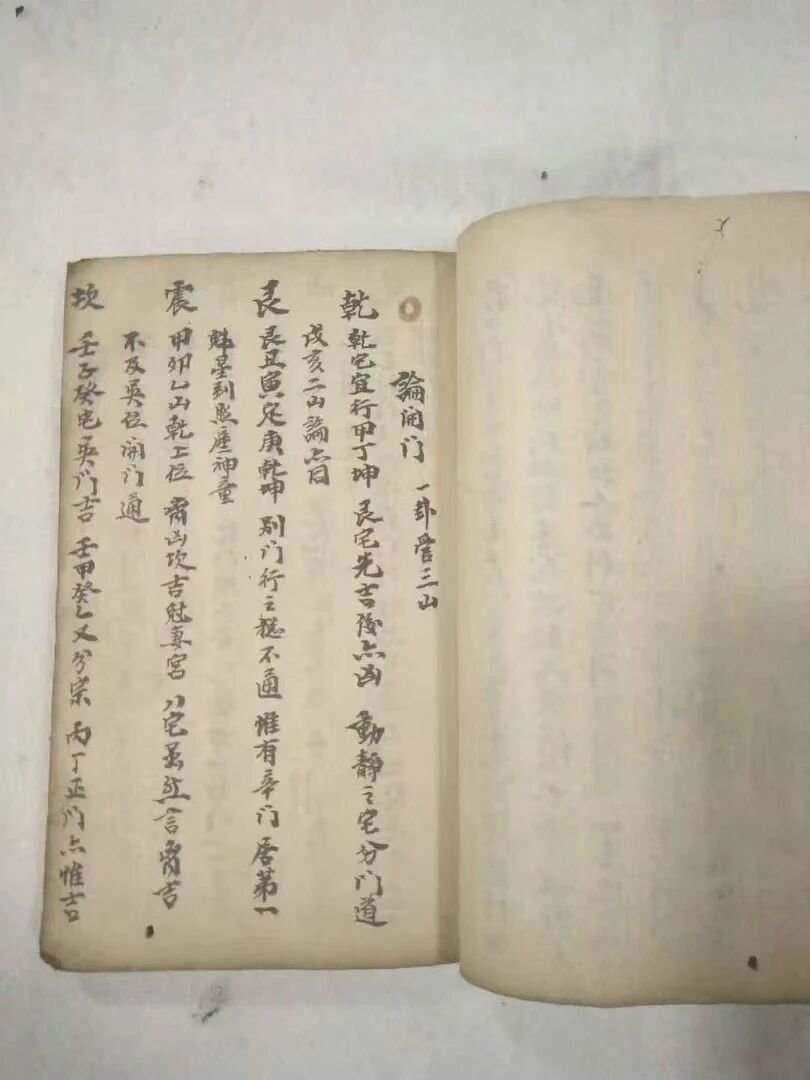 論开门 一卦管三山
乾 乾宅宜行甲丁坤 艮宅先吉後点凶 動靜之宅分门道
戌亥二山論点同
艮 艮丑寅定庚乾坤 别门行之總不通 惟有辛门居第一
魁星到照產神童
震 甲卯乙山乾上位 凶坎吉魁真宮 宅虽然言吉
不及巽位開门通
坎 壬子癸宅巽门吉 壬甲癸乙又分宗 丙丁正门点惟吉